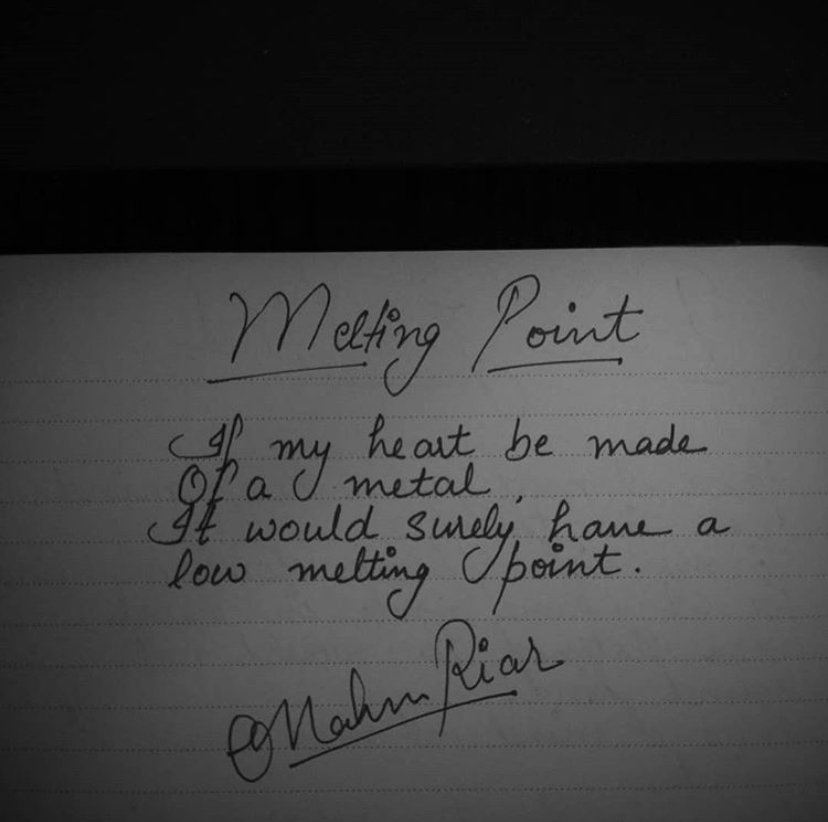 Melting Point
If my heart be made
Of a metal,
It would surely have a
low melting point.
Riar